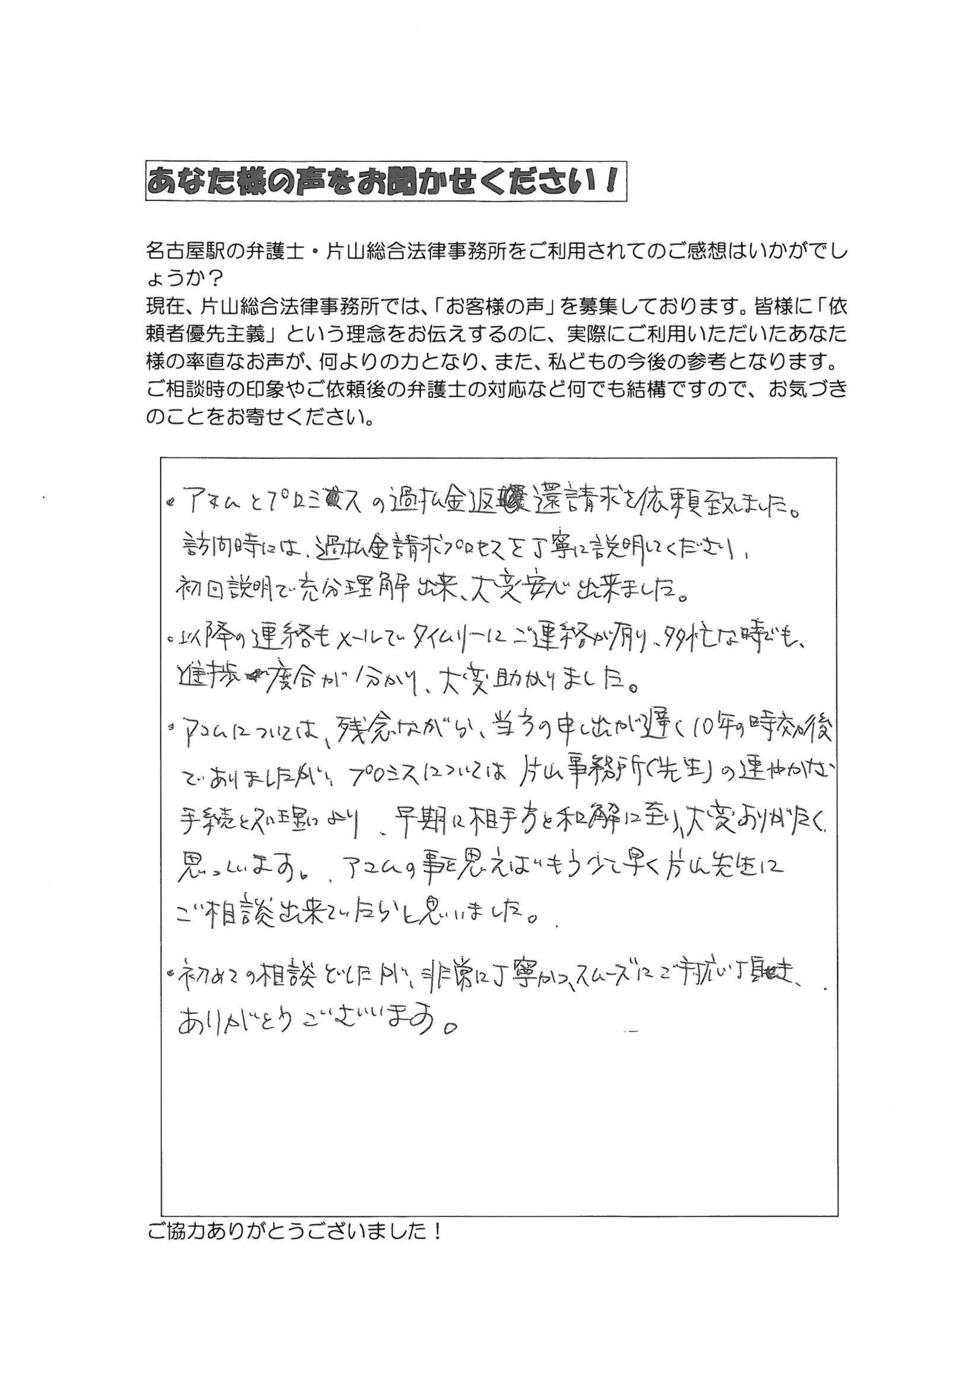 あなた様の声をお聞かせください！
名古屋駅の弁護士・片山総合法律事務所をご利用されてのご感想はいかがでし
ょうか？
現在、片山総合法律事務所では、「お客様の声」を募集しております。皆様に「依
頼者優先主義」という理念をお伝えするのに、実際にご利用いただいたあなた
様の率直なお声が、何よりの力となり、また、私どもの今後の参考となります。
ご相談時の印象やご依頼後の弁護士の対応など何でも結構ですので、お気づき
のことをお寄せください。
・アコムとプロミスの過払金返還請求を依頼致しました。
訪問時には、過払金請求プロセスを丁寧に説明してくださり、
初回説明で充分理解出来、大変安心出来ました。
・以降の連絡もメールでタイムリーにご連絡が有り、多忙な時でも、
進捗度合が分かり、大変助かりました。
・アコムについては、残念ながら、当方の申し出が遅く10年の時効後
でありましたが、プロミスについては片山事務所(先生)の速やかな
手続と処理により、早期に相手方と和解に至り、大変ありがたく
思っています。アコムの事を思えばもう少し早く片山先生に
ご相談出来ていたらと思いました。
・初めての相談でしたが、非常に丁寧かつ、スムーズにご対応頂き、
ありがとうございます。
ご協力ありがとうございました！